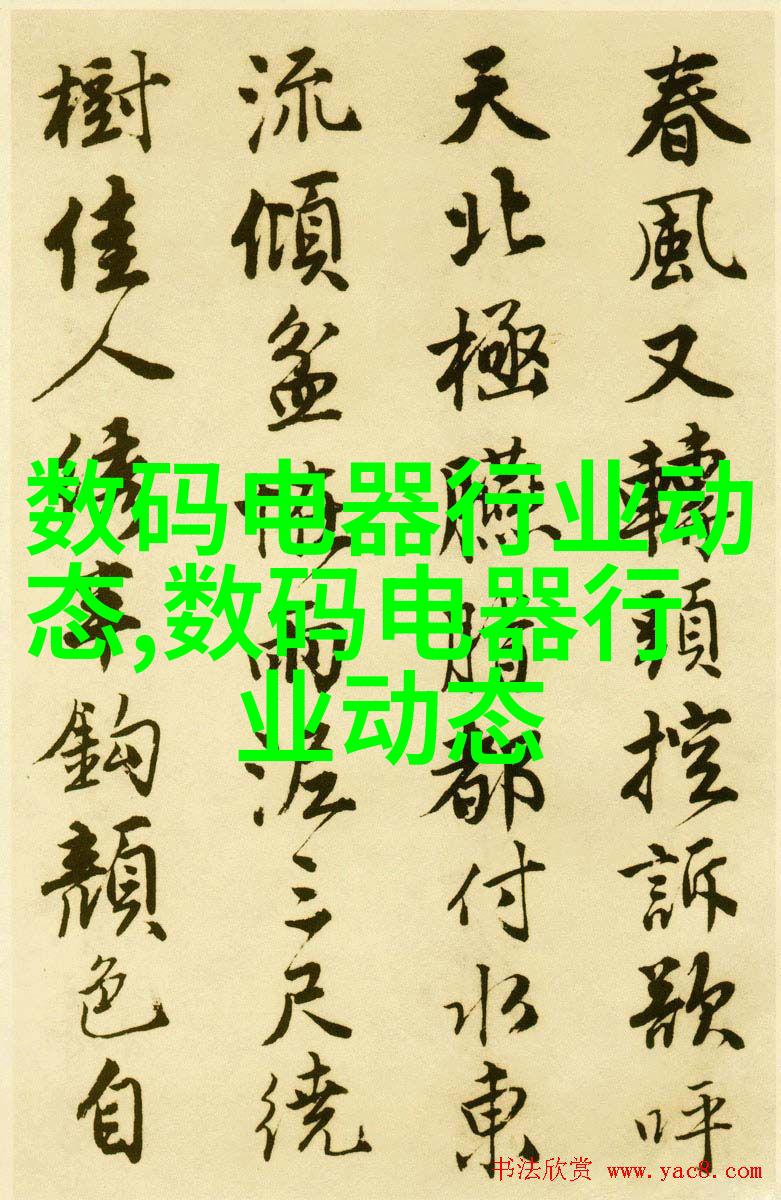 春風又轉頭控訴歌呼
天北極臙脂都付水東
流傾盆雨泥三尺繞
樹佳人鈎顏色自
数码电器行业动
态,数码电器行
业动态
书法欣赏 www.yac8.com